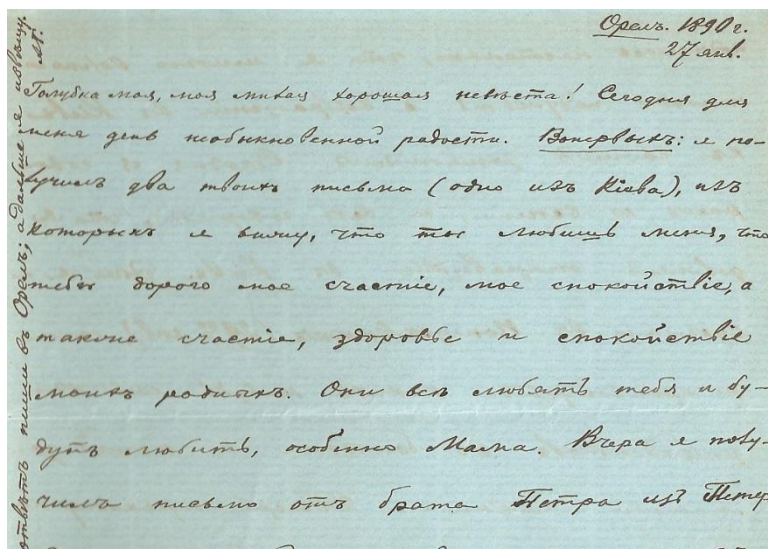 Орелъ. 1890 г.
27 янв.
Голубка моя, моя милая хорошая невѣста! Сегодня для
меня день необыкновенной радости. Вопервыхъ: я по-
лучилъ два твоихъ письма (одно изъ Кіева), изъ
которыхъ я вижу, что ты любишь меня, что
тебѣ дорого мое счастіе, мое спокойствіе, а
также счастіе, здоровье и спокойствіе
моихъ родныхъ. Они всѣ любятъ тебя и бу-
дутъ любить, особенно Мама. Вчера я полу-
чилъ письмо отъ брата Петра изъ Петер
отвѣтъ пиши въ Орелъ; а дальше я извѣщу.